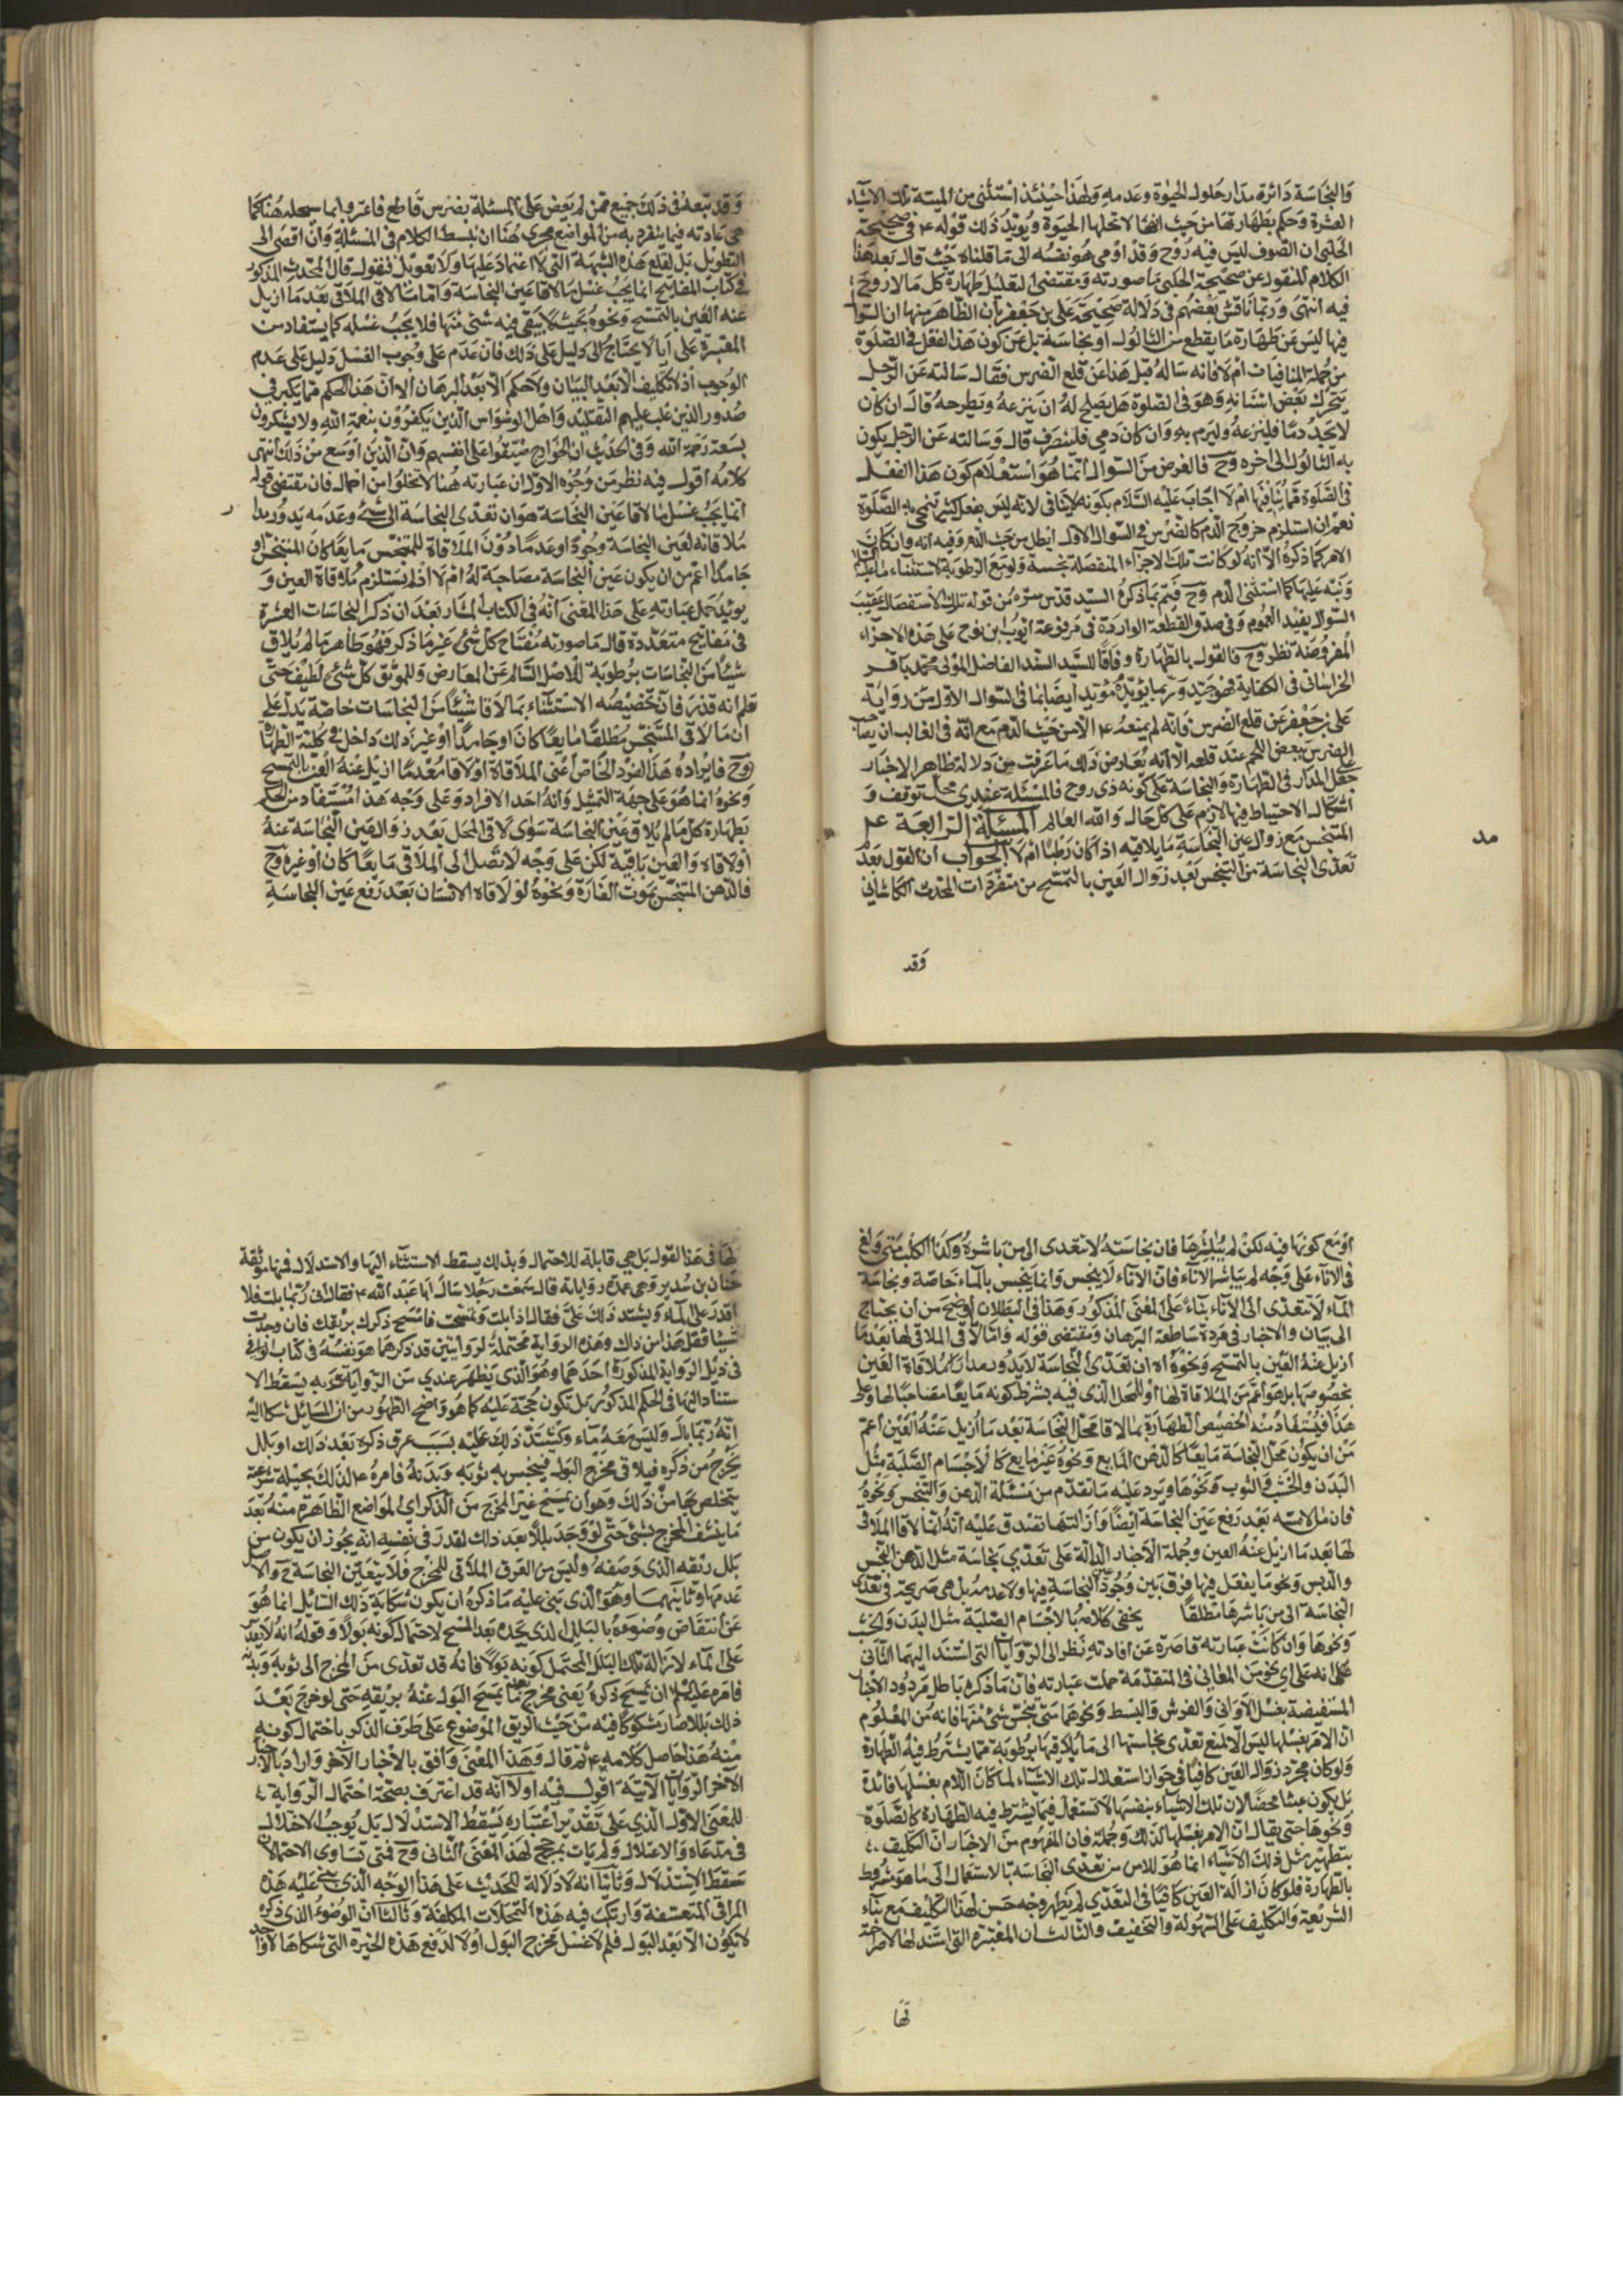 والنجاسة دائرة مدار حلول الحيوة وعدمه ولهذا حينئذ استثنى من الميتة تلك الاشياء
العشرة وحكم بطهارتها من حيث انها لا تحلها الحيوة ويؤيد ذلك قوله ع في صحيحة
الحلبي ان الصوف ليس فيه روح وقد اومى هو نفسه الى ما قلناه حيث قال بعد هذا
الكلام المنقول عن صحيحة الحلبي ما صورته ومقتضى التعليل طهارة كل ما لا روح
فيه انتهى وربما ناقش بعضهم في دلالة صحيحة على بن جعفر بان الظاهر منها ان السؤال
فيها ليس عن طهارة ما يقطع من الثالول او نجاسته بل عن كون هذا الفعل في الصلوة
من جملة المنافيات ام لا فانه ساله قبل هذا عن قلع الضرس فقال سالته عن الرجل
يتحرك بعض اسنانه وهو في الصلوة هل يصلح له ان ينزعه ويطرحه قال ان كان
لا يجد دما فلينزعه وليرم به وان كان دمي فلينصرف قال وسالته عن الرجل يكون
به الثالول الى اخره وح فالغرض من السوال انما هو استعلام كون هذا الفعل
في الصلوة مما ينافيها ام لا اجاب عليه السلام بكونه لا ينافي لانه ليس بفعل كثير تنمحي به الصلوة
نعم ان استلزم خروج الدم كالضرس في السوال الاول ابطل من حيث الدم وفيه انه وان كان
الامر كما ذكره الا انه لو كانت تلك الاجزاء المنفصلة نجسة ولو مع الرطوبة لاستثناه
ونبه عليها كما استثنى الدم وح فيتم ما ذكره السيد قدس سره من قوله ترك الاستفصال عقيب
السوال يفيد العموم وفي صدق القطعة الواردة في مرفوعة ايوب ابن نوح على هذه الاجزاء
المفروضة نظر وح فالقول بالطهارة وفاقا للسيد السند الفاضل المولى محمد باقر
الخراساني في الكفاية قوى جيد وربما يؤيده مؤيد ايضا بما في السوال الاول من رواية
على بن جعفر عن قلع الضرس فانه لم يمنعه ع الا من حيث الدم مع انه في الغالب ان يصاحب
الضرس بعض اللحم عند قلعه الا انه يعارض ذلك ما عرفت من دلالة ظاهر الاخبار
جعل المدار في الطهارة والنجاسة على كونه ذي روح فالمسئلة عندي محل توقف و
اشكال الاحتياط فيها لازم على كل حال والله العالم المسئلة الرابعة
المتنجس مع زوال عين النجاسة ما يلاقيه اذا كان رطبا ام لا الجواب ان القول بعدم
تعدى النجاسة من المتنجس بعد زوال العين بالتمسح من متفردات المحدث الكاشاني
وقد
مد
وقد تبعه في ذلك جميع ممن لم يعض على المسئلة بضرس قاطع فاغتروا بما سجله هنا كما
هي عادته فيما ينفرد به من المواضع فحرى هنا ان نبسط الكلام في المسئلة وان افضى الى
التطويل بل لقلع هذه الشبهة التي لا اعتماد عليها ولا تعويل فنقول قال المحدث المذكور
في كتاب المفاتيح انما يجب غسل ما لاقا عين النجاسة واما ما لاقى الملاقى بعد ما ازيل
عنه العين بالتمسح ونحوه بحيث لا يبقى فيه شئ منها فلا يجب غسله كما يستفاد من
المعتبرة على انا لا يحتاج الى دليل على ذلك فان عدم على وجوب الغسل دليل على عدم
الوجوب اذ لا تكليف الا بعد البيان ولا حكم الا بعد البرهان الا ان هذا الحكم مما يكبر في
صدور الذين غلب عليهم التقليد واهل الوسواس الذين يكفرون بنعمة الله ولا يشكرون
بسعة رحمة الله وفي الحديث ان الخوارج ضيقوا على انفسهم وان الدين اوسع من ذلك انتهى
كلامه اقول فيه نظر من وجوه الاول ان عبارته هنا لا تخلوا من اجمال فان مقتضى قوله
انما يجب غسل ما لاقا عين النجاسة هو ان تعدى النجاسة الى شئ وعدمه يدور مدار
ملاقاته لعين النجاسة وجودا وعدما دون الملاقاة للمتنجس مايعا كان المتنجس او
جامدا اعم من ان يكون عين النجاسة مصاحبة له ام لا اذ لم يستلزم ملاقاة العين و
يويد حمل عبارته على هذا المعنى انه في الكتاب المشار بعد ان ذكر النجاسات العشرة
في مفاتيح متعددة قال ما صورته مفتاح كل شئ غير ما ذكر فهو طاهر ما لم يلاق
شيئا من النجاسات برطوبة للاصل السالم عن المعارض وللموثق كل شئ نظيف حتى
تعلم انه قذر فان تخصيصه الاستثناء بما لاقا شيئا من النجاسات خاصة يدل على
ان ما لاقى المتنجس مطلقا مايعا كان او جامدا او غير ذلك داخل في كلية الطهارة
وح فايراده هذا الفرد الخاص اعنى الملاقاة او لاقا بعد ما ازيل عنه العين بالتمسح
ونحوه انما هو على جهة التمثيل وانه احد الافراد وعلى وجه هذا مستفاد من الحكم
بطهارة كل ما لم يلاق عين النجاسة سوى لاقى المحل بعد زوال عين النجاسة عنه
او لاقاه والعين باقية لكن على وجه لا تصل الى الملاقى مايعا كان او غيره وح
فالدهن المتنجس بموت الفارة ونحوه لو لاقاه الانسان بعد رفع عين النجاسة
او مع كونها فيه لكن لم يباشرها فان نجاسته لا تتعدى الى من باشره وكذا الكلب متى ولغ
في الاناء على وجه لم يباشر الاناء فان الاناء لا ينجس وانما ينجس بالماء خاصة ونجاسة
الماء لا تتعدى الى الاناء بناء على المعنى المذكور وهذا في البطلان اوضح من ان يحتاج
الى بيان والاخبار في رده ساطعة البرهان ومقتضى قوله واما لاقى الملاقى لها بعد ما
ازيل عنه العين بالتمسح ونحوه اه ان تعدى النجاسة لا يدور مدار ملاقاة العين
بخصوصها بل هو اعم من الملاقاة لها او للمحل الذي فيه بشرط كونه مايعا مصاحبا لها وعلى
هذا فيستفاد منه تخصيص الطهارة بما لاقا محل النجاسة بعد ما ازيل عنه العين اعم
من ان يكون محل النجاسة مايعا كالدهن المايع ونحوه غير مايع كالاجسام الصلبة مثل
البدن والخشب والثوب ونحوها ويرد عليه ما تقدم من مسئلة الدهن والتنجس ونحوه
فان ملامسه بعد رفع عين النجاسة ايضا وازالتها تصدق عليه انه انما لاقا الملاقى
لها بعد ما ازيل عنه العين وجملة الاخبار الدالة على تعدي نجاسة مثل الدهن النجس
والدبس ونحو ما يفعل فيها فرق بين وجود عين النجاسة فيها ولا عدمه بل هي صريحة في تعدى
النجاسة الى من باشرها مطلقا يخفى كلامه بالاجسام الصلبة مثل البدن والخشب
ونحوها وان كانت عبارته قاصرة عن افادته نظرا الى الروايات التي استند اليها الثاني
على انه على اي نحو من المعاني في المتقدمة حملت عبارته فان ما ذكره باطل مردود الاخبار
المستفيضة بغسل الاواني والفرش والبسط ونحوها متى تنجس شئ منها فانه من المعلوم
ان الامر بغسلها ليس الا لمنع تعدى نجاستها الى ما يلاقيها برطوبة مما يشترط فيه الطهارة
ولو كان مجرد زوال العين كافيا في جواز استعمال تلك الاشياء لما كان للامر بغسلها فائدة
بل يكون عبثا محضا لان تلك الاشياء بنفسها لا تستعمل فيما يشترط فيه الطهارة كالصلوة
ونحوها حتى يقال ان الامر بغسلها لذلك وجملة فان المفهوم من الاخبار ان التكليف
بتطهير مثل ذلك الاشياء انما هو للامن من تعدى النجاسة بالاستعمال الى ما هو مشروط
بالطهارة فلو كان ازالة العين كافيا في التعدي لم يظهر وجه حسن لهذا التكليف مع بناء
الشريعة والتكليف على السهولة والتخفيف والثالث ان المعتبره التي استند لها لا صراحة
لها
لها في هذا القول بل هي قابلة للاحتمال وبذلك يسقط الاستناد اليها والاستدلال فمنها موثقة
حنان بن سدير وهي عمدة رواياته قال سمعت رجلا سال ابا عبد الله ع فقال اني ربما بلت فلا
اقدر على الماء ويشتد ذلك على فقال اذا بلت وتمسحت فامسح ذكرك بريقك فان وجدت
شيئا فقل هذا من ذاك وهذه الرواية محتملة لروايتين قد ذكرهما هو نفسه في كتاب الوافي
في ذيل الرواية المذكورة احدهما وهو الذي يظهر عندي من الرواية وبه يسقط الا
ستناد اليها في الحكم المذكور بل تكون حجة عليه كما هو واضح الظهور من ان السائل شكا اليه
انه ربما بال وليس معه ماء ويشتد ذلك عليه بسبب عرق ذكره بعد ذلك او بلل
يخرج من ذكره فيلاقى مخرج البول فينجس به ثوبه وبدنه فامره ع لذلك بحيلة شرعية
يتخلص بها من ذلك وهو ان يمسح غير المخرج من الذكر اي المواضع الظاهرة منه بعد
ما ينشف المخرج بشئ حتى لو وجد بللا بعد ذلك لقدر في نفسه انه يجوز ان يكون من
بلل ريقه الذي وصفه وليس من العرق الملاقى للمخرج فلا يتعين النجاسة ح والاصل
عدمها وثانيهما وهو الذي بنى عليه ما ذكره ان يكون شكاية ذلك السائل انما هو
عن انتقاض وضوءه بالبلل الذي يجده بعد المسح لاحتمال كونه بولا وقوله انه لا يقدر
على الماء لازالة تلك البلل المحتمل كونه بولا فانه قد تعدى من المخرج الى ثوبه وبدنه
فامره عليه السلم ان يمسح ذكره يعني مخرج بعد ما يمسح البول عنه بريقه حتى لو خرج بعد
ذلك بلل لصار مشكوكا فيه من حيث الريق الموضوع على طرف الذكر باحتمال كونه
منه هذا حاصل كلامه ثم قال وهذا المعنى وافق بالاخبار الآخر واراد بالاخبار
الآخر الروايات الآتية اقول فيه اولا انه قد اعترف بصحة احتمال الرواية
للمعنى الاول الذي على تقدير اعتباره يسقط الاستدلال بل يوجب الاختلال
في مدعاه والاعتلال ولم يات بمرجح لهذا المعنى الثاني وح فمتى تساوى الاحتمالان
سقط الاستدلال وثانيا انه لا دلالة للحديث على هذا الوجه الذي بنى عليه هذه
المراقى المتعسفة وارتكب فيه هذه التمحلات المكلفة وثالثا ان الوضوء الذي ذكره
لا يكون الا بعد البول فلم لا غسل مخرج البول اولا لدفع هذه الحيرة التي شكاها لاواحد